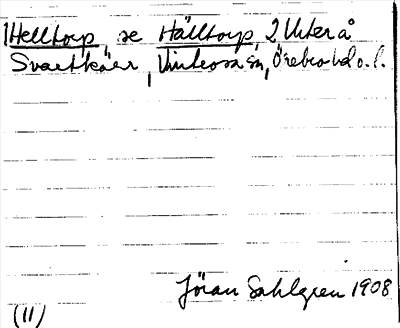 1 Helltorp, se Hälltorp, 2 Uterå
Svartkärr, Vintrosa sn, Örebro hd o. l.
Jöran Sahlgren 1908
(11)